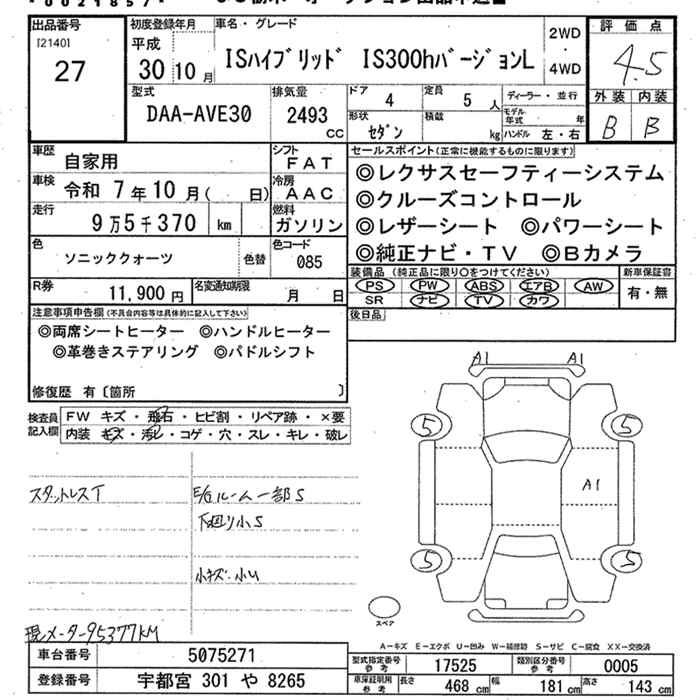 0021857
出品番号
[2140]
27
初度登録年月
平成
30 10 月
車名・グレード
ISハイブリッド IS300hバージョンL
2WD
・
4WD
評価点
4.5
外装 内装
B B
型式
DAA-AVE30
排気量
2493
CC
ドア
4
定員
5 人
形状
セダン
積載
kg
ディーラー・並行
モデル年式 年
ハンドル 左・右
車歴
自家用
シフト
FAT
車検
令和 7 年 10 月( 日)
冷房
AAC
走行
9万5千370 km
燃料
ガソリン
色
ソニッククォーツ
色替
色コード
085
R券
11,900 円
名変通知期限
月 日
セールスポイント(正常に機能するものに限ります)
◎レクサスセーフティーシステム
◎クルーズコントロール
◎レザーシート ◎パワーシート
◎純正ナビ・TV ◎Bカメラ
装備品 (純正品に限り○をつけてください)
PS PW ABS エアB AW
SR ナビ TV カワ
新車保証書
有・無
後日品
注意事項申告欄(不具合内容等は具体的に記入して下さい)
◎両席シートヒーター ◎ハンドルヒーター
◎革巻きステアリング ◎パドルシフト
修復歴 有〔箇所 〕
検査員記入欄
FW キズ・飛石・ヒビ割・リペア跡・×要
内装 キズ・汚レ・コゲ・穴・スレ・キレ・破レ
スタットレスT
E/Gルーム一部S
下廻り小S
小キズ・小U
現メーター95377KM
A1 A1
5 5
A1
5 5
スペア
A-キズ E-エクボ U-凹み W-補修跡 S-サビ C-腐食 XX-交換済
車台番号 5075271
登録番号 宇都宮 301 や 8265
型式指定番号 参考 17525
類別区分番号 参考 0005
車庫証明用 参考 長さ 468 cm 幅 181 cm 高さ 143 cm